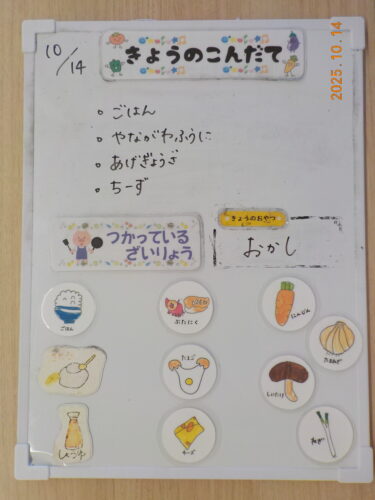 10/14
きょうのこんだて
2025.10.14
ごはん
やながわふうに
あげぎょうざ
ちーず
つかっている
ざいりょう
きょうのおやつ
おかし
ごはん
ぶたにく
にんじん
たまねぎ
たまご
しいたけ
しょうゆ
チーズ
ねぎ